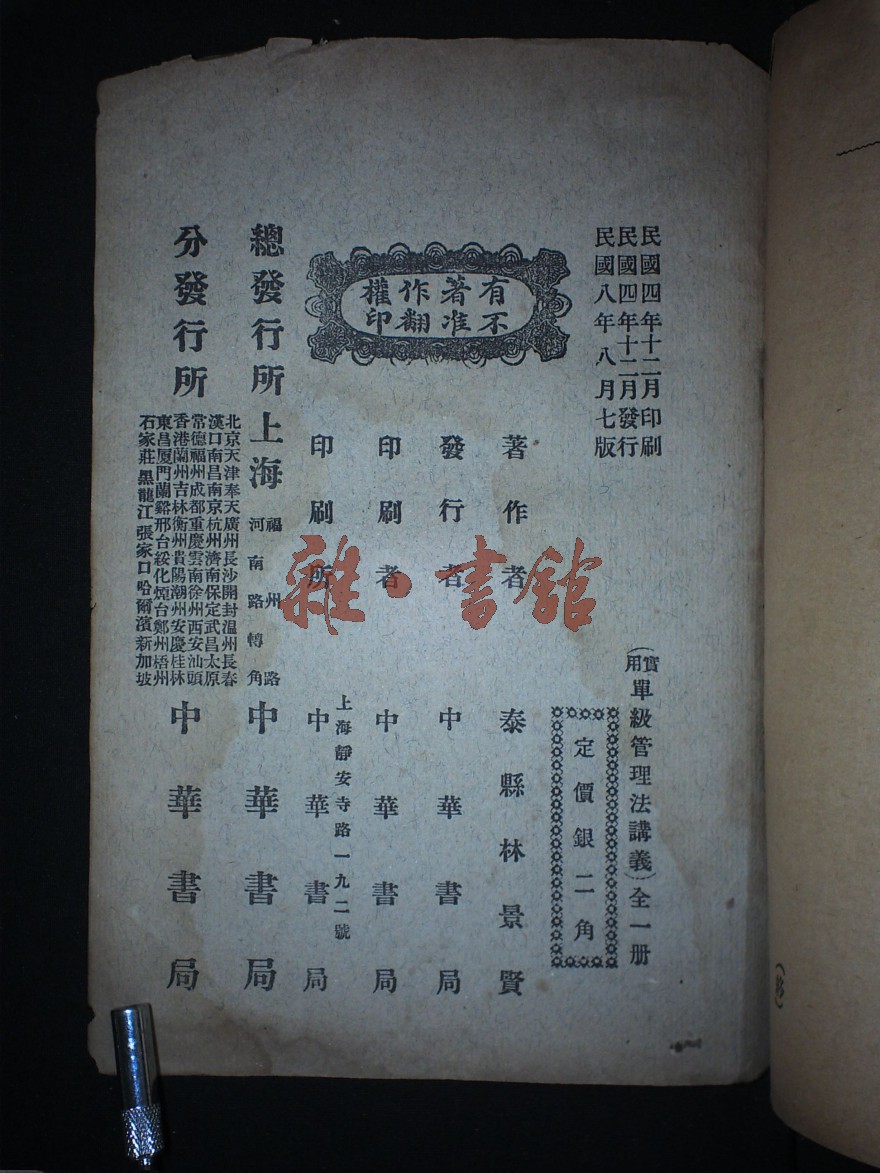 民國四年十二月印刷
民國四年十二月發行
民國八年八月七版
(實用單級管理法講義)全一册
定價銀二角
有著作權
不准翻印
著作者 泰縣林景賢
發行者 中華書局
印刷者 中華書局
印刷所 上海靜安寺路一九二號 中華書局
總發行所 上海 福州路 河南路轉角 中華書局
分發行所
北京天津奉天廣州長沙開封温州長春
漢口南昌南京杭州濟南保定武昌太原
常德福州成都重慶雲南徐州西安汕頭
香港蘭州吉林衡州貴陽潮州安慶桂林
東昌厦門蘭谿邢台綏化煙台鄭州梧州
石家莊黑龍江張家口哈爾濱新加坡
中華書局
雜·書館